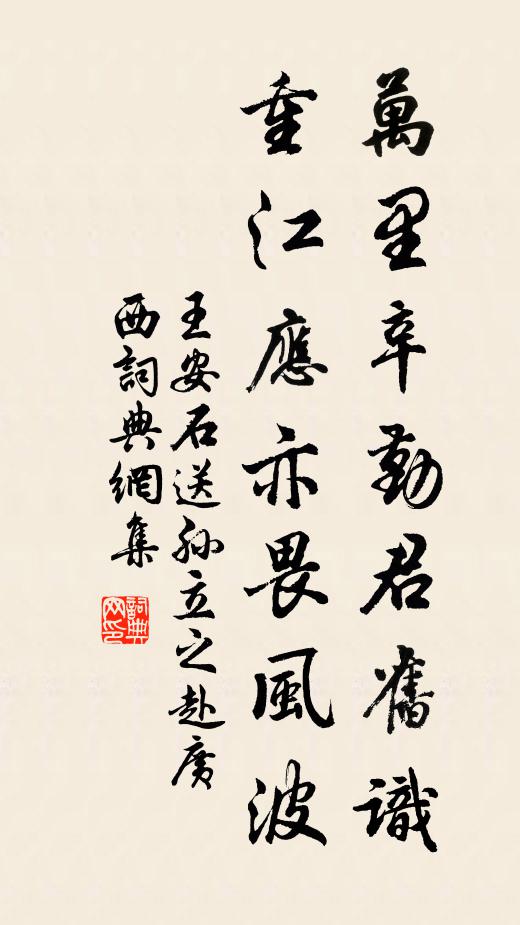 萬里辛勤君舊識
重江應亦畏風波
王安石送孫立之赴廣
西詞典網集
詞典网印